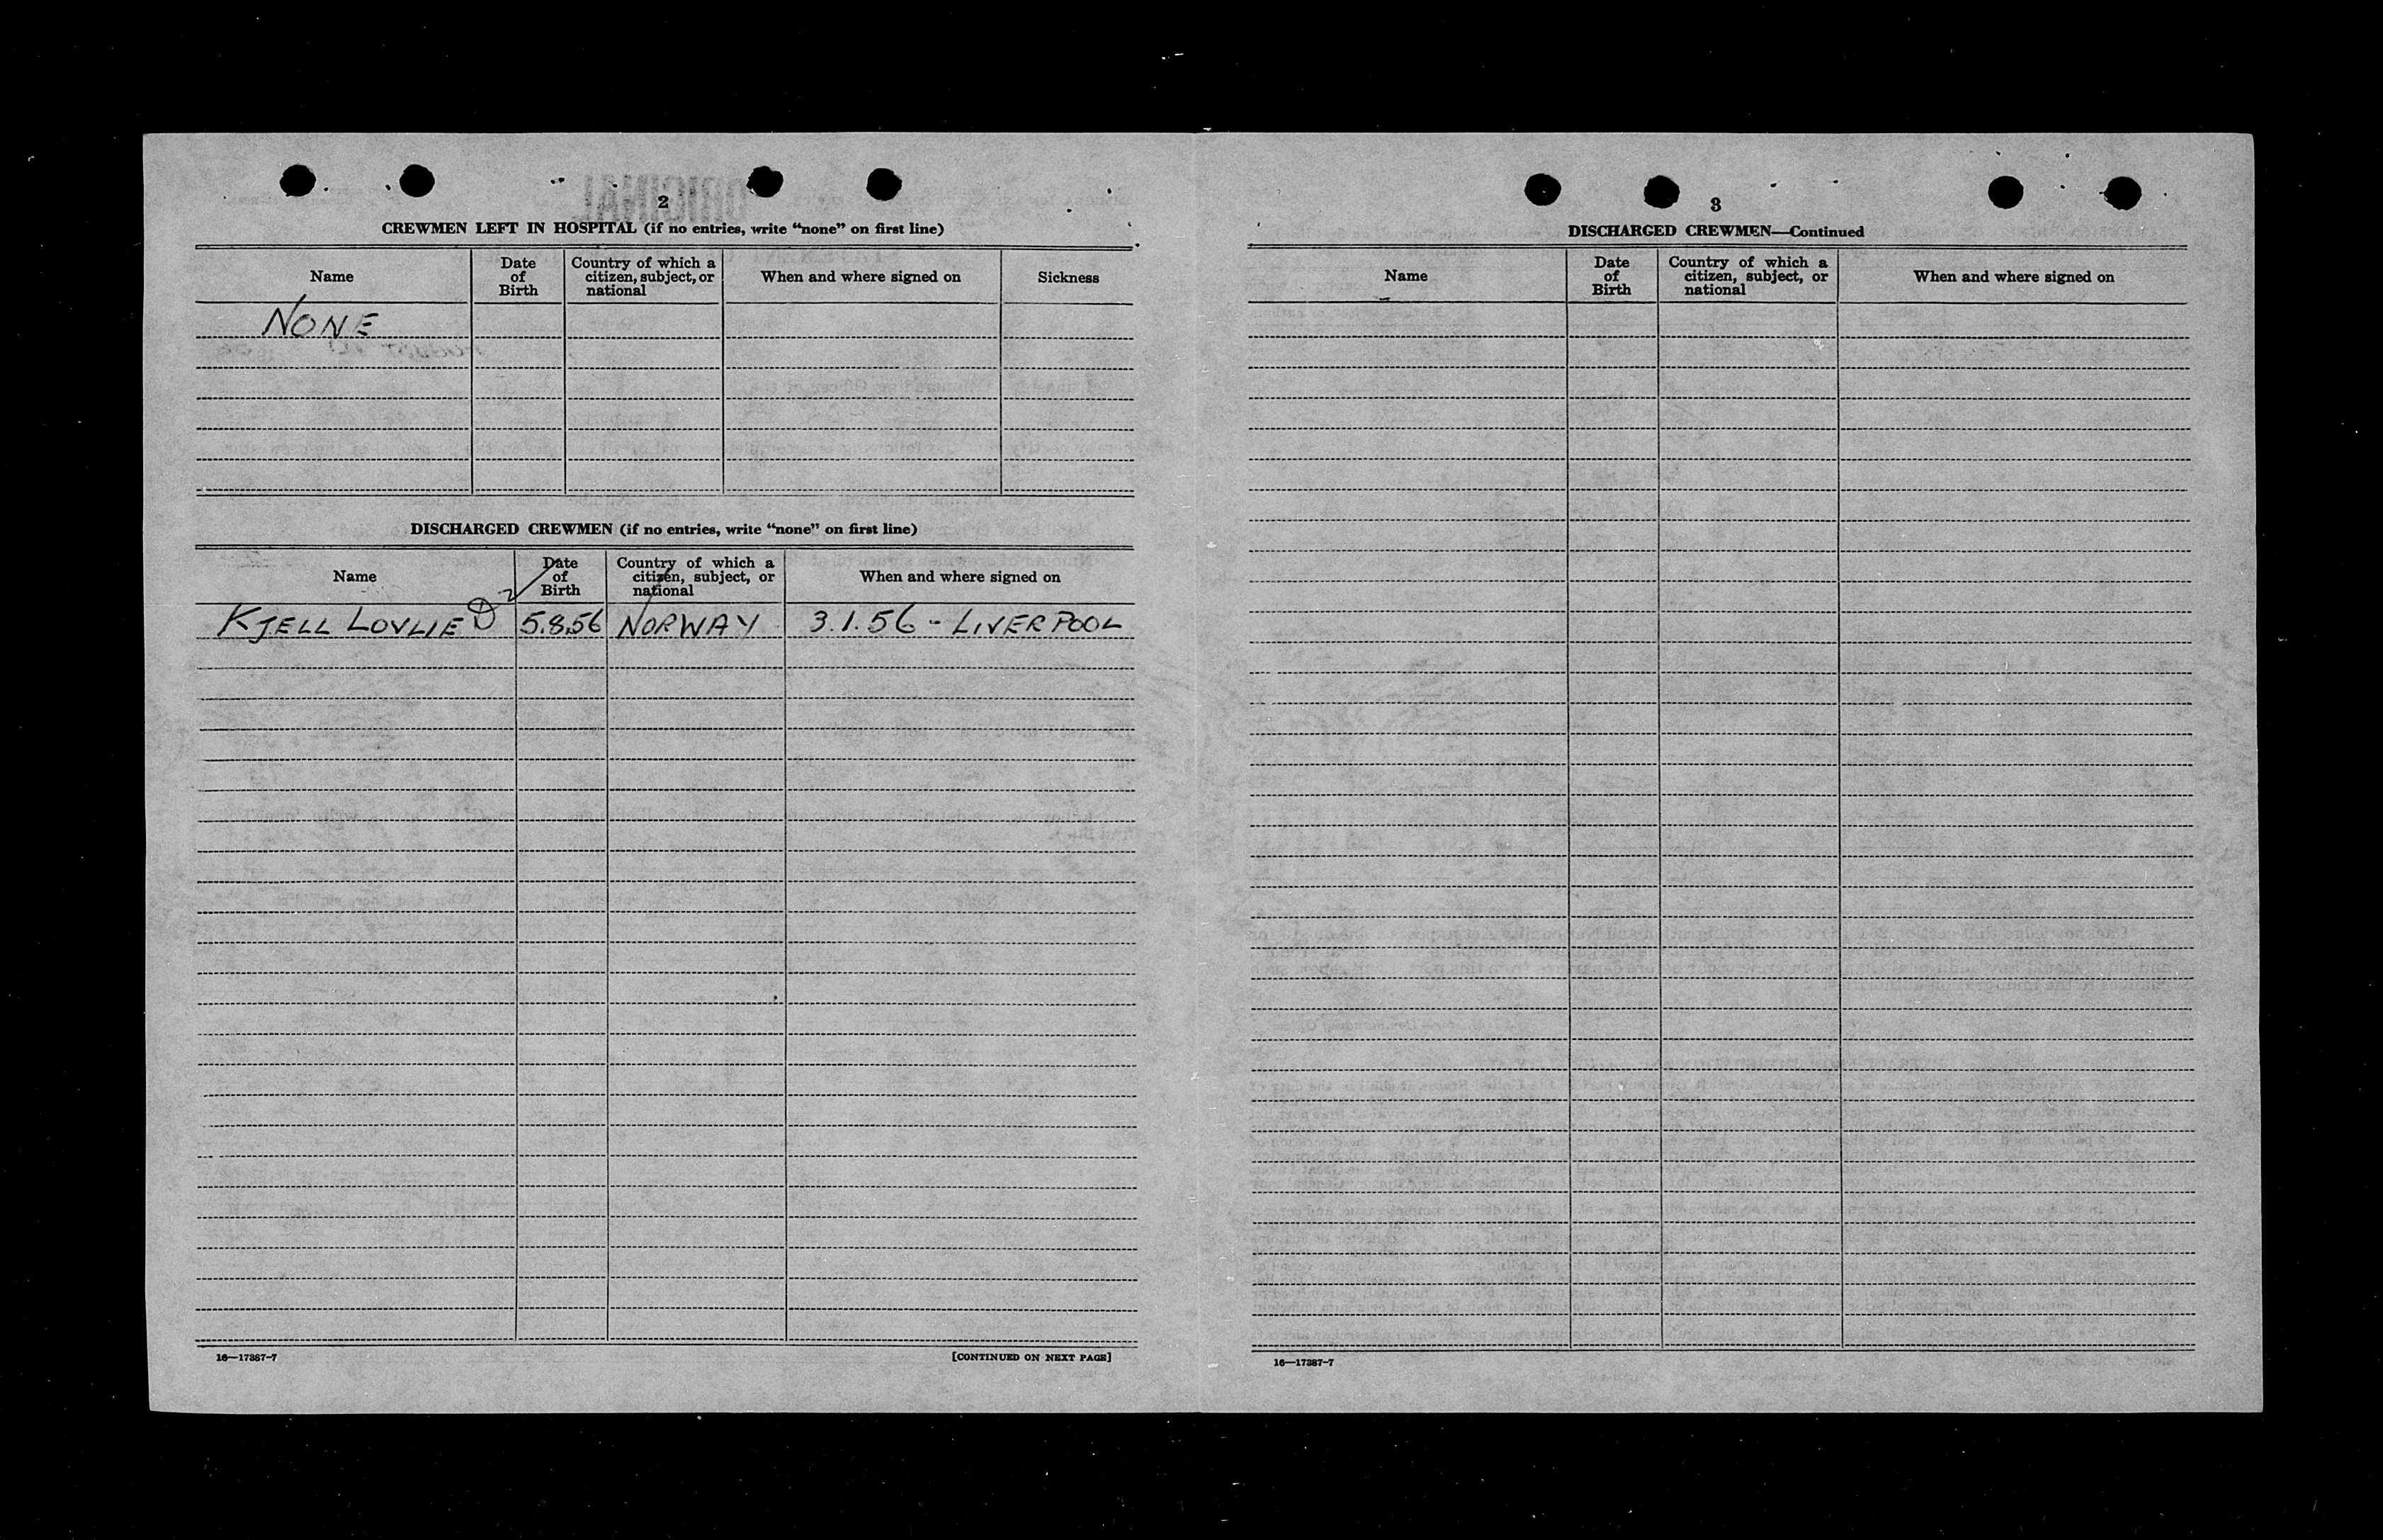 ORIGINAL
2
CREWMEN LEFT IN HOSPITAL (if no entries, write “none” on first line)
Name
Date of Birth
Country of which a citizen, subject, or national
When and where signed on
Sickness
NONE
DISCHARGED CREWMEN (if no entries, write “none” on first line)
Name
Date of Birth
Country of which a citizen, subject, or national
When and where signed on
KJELL LOVLIE D 2 5.8.56 NORWAY 3.1.56 - LIVERPOOL
16—17387-7
[CONTINUED ON NEXT PAGE]
3
DISCHARGED CREWMEN—Continued
Name
Date of Birth
Country of which a citizen, subject, or national
When and where signed on
16—17387-7